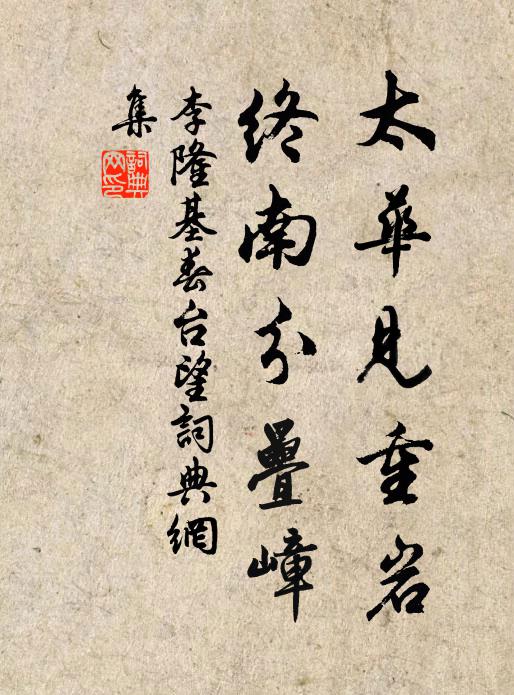 太華見重岩
終南分疊嶂
李隆基春台望詞典網
集
詞典
网印